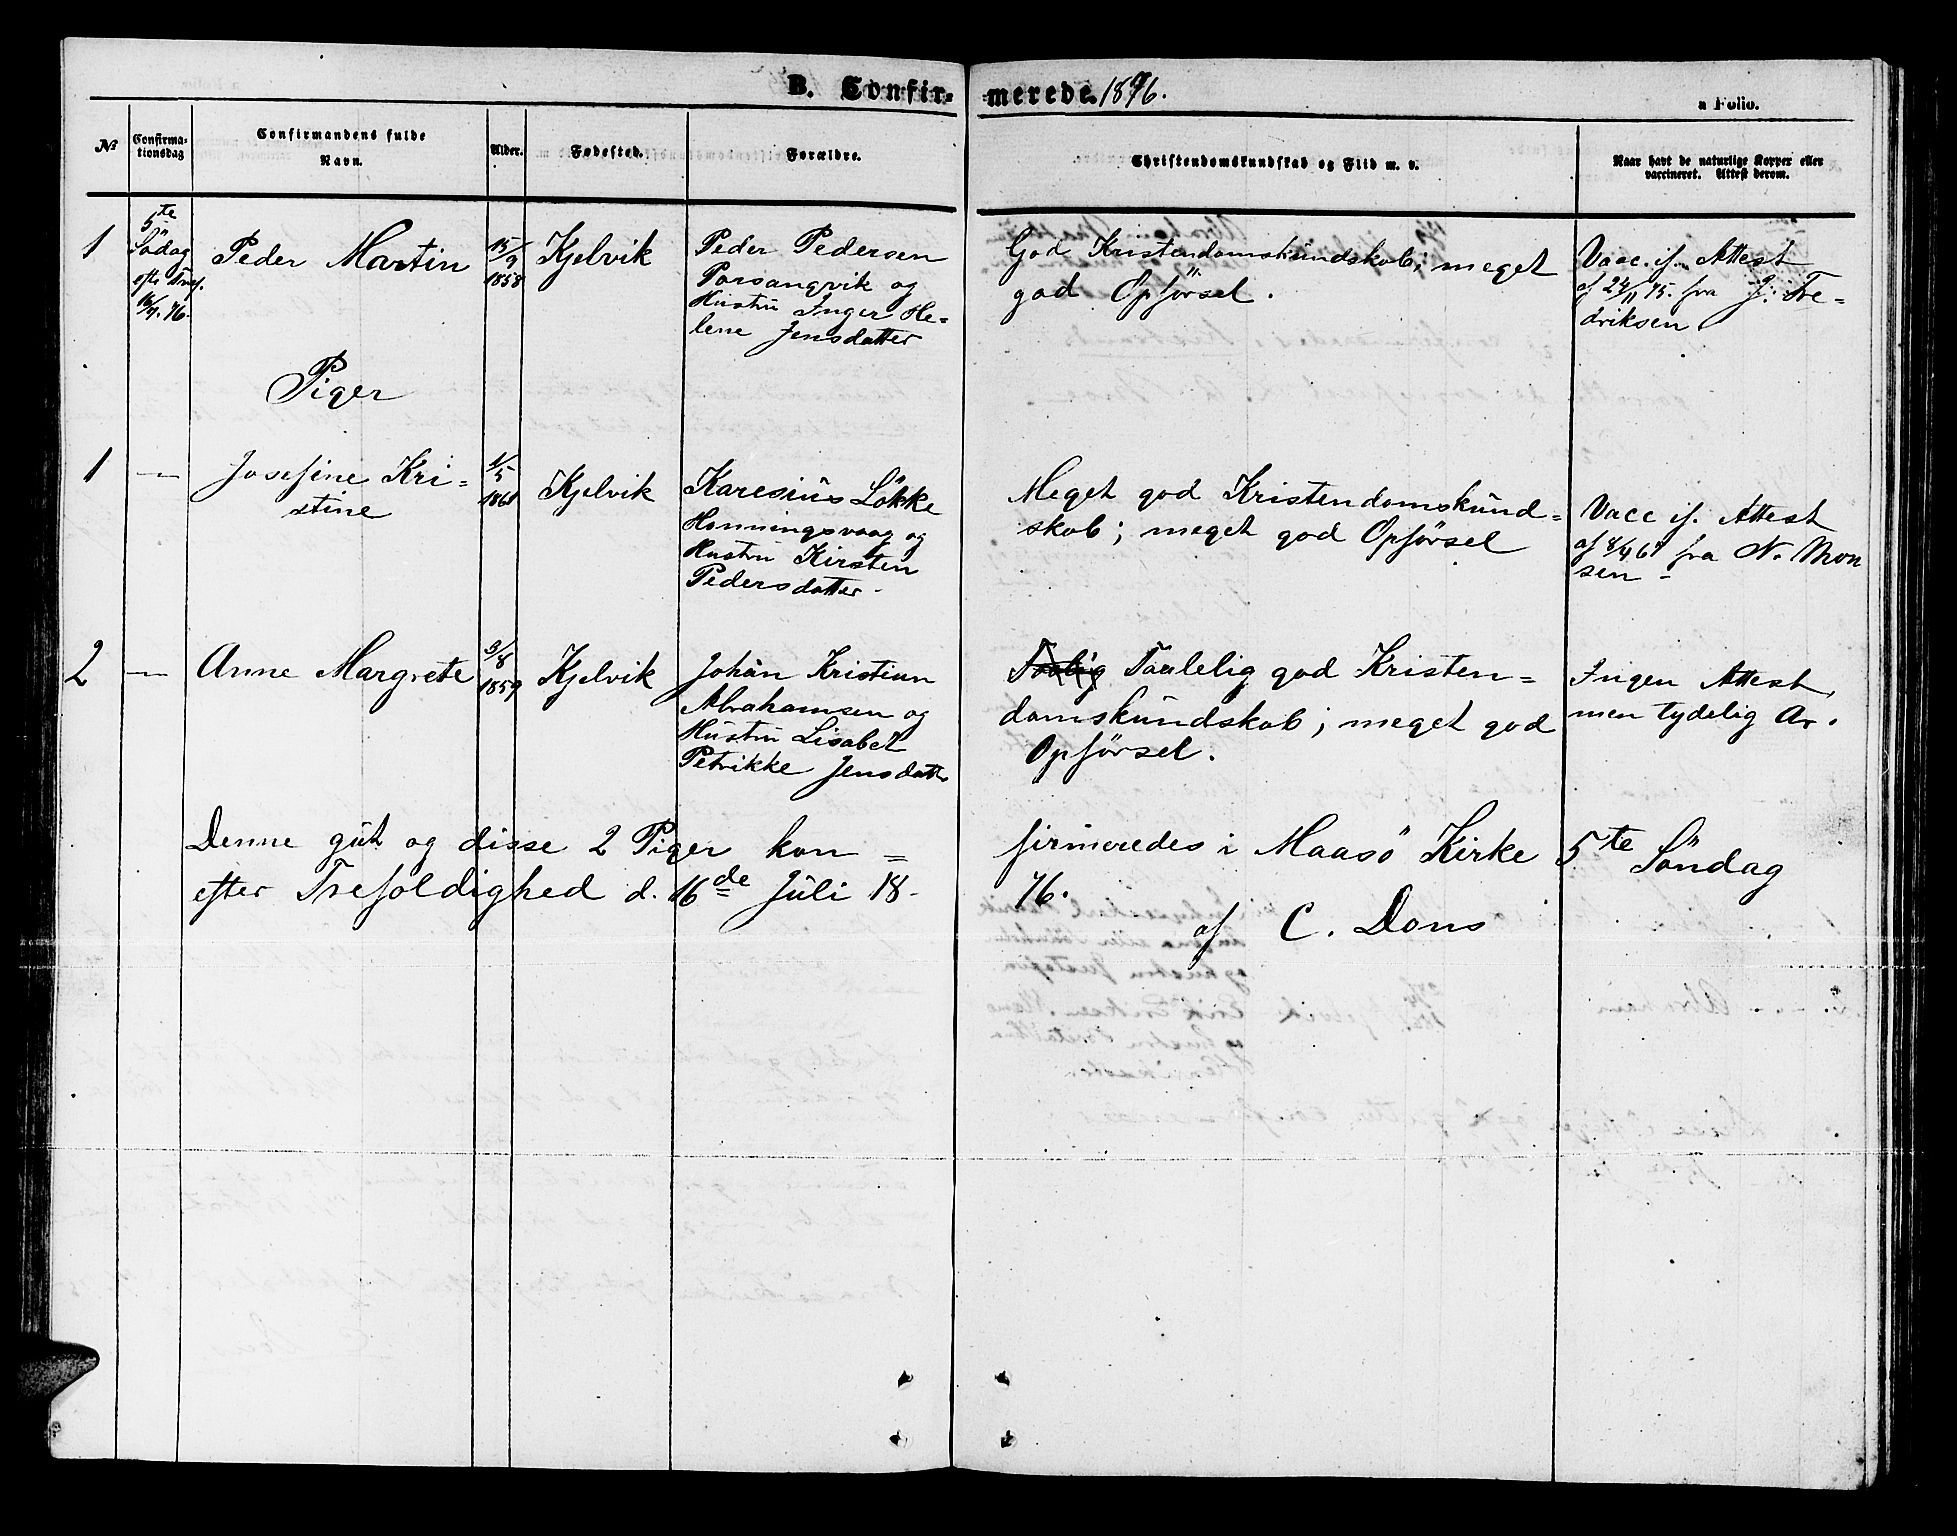 B. Confir- merede 1876.
a Folio.
No
Confirma-
tionsdag
Confirmandens fulde
Navn.
Alder.
Fødested.
Forældre.
Christendomskundskab og Flid m. v.
Naar havt de naturlige Kopper eller
vaccineret. Attest derom.
1
5te
Södag
efter Tref.
16/7. 76.
Peder Martin
15/9
1858
Kjelvik
Peder Pedersen
Porsangvik og
Hustru Inger He-
lene Jensdatter
God Kristendomskundskab; meget
god Opförsel.
Vacc. if. Attest
af 24/11 75. fra J. Fre-
driksen
Piger
1
—
Josefine Kri-
stine
1/5
1861
Kjelvik
Karesius Lökke
Honningsvaag og
Hustru Kirsten
Pedersdatter.
Meget god Kristendomskund-
skab; meget god Opförsel
Vacc if. Attest
af fra N. Mon
sen
2
—
Anne Margrete
3/8
1859
Kjelvik
Johan Kristian
Abrahamsen og
Hustru Lisabet
Petrikke Jensdatter
Taalelig god Kristen-
domskundskab; meget god
Opförsel.
Ingen Attest,
men tydelig Ar.
Denne gut og disse 2 Piger kon- firmeredes i Maasö Kirke 5te Söndag
efter Trefoldighed d. 16de Juli 18- 76.
af C. Dons